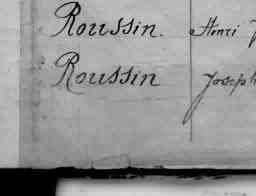 Roussin. Henri
Roussin Joseph